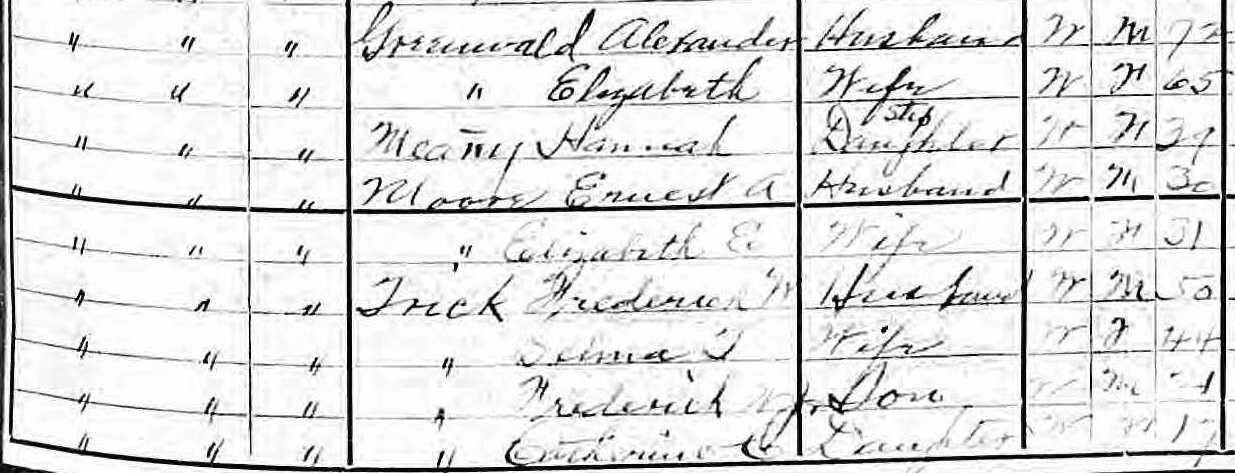 " " " Greenwald Alexander Husband W M 72
" " " " Elizabeth Wife W F 65
" " " Meany Hannah Step Daughter W F 39
" " " Moore Ernest A Husband W M 30
" " " " Elizabeth E Wife W F 31
" " " Trick Frederick W Husband W M 50
" " " " Selma T Wife W F 44
" " " " Frederick W Jr Son W M 21
" " " " Catherine C Daughter W 17